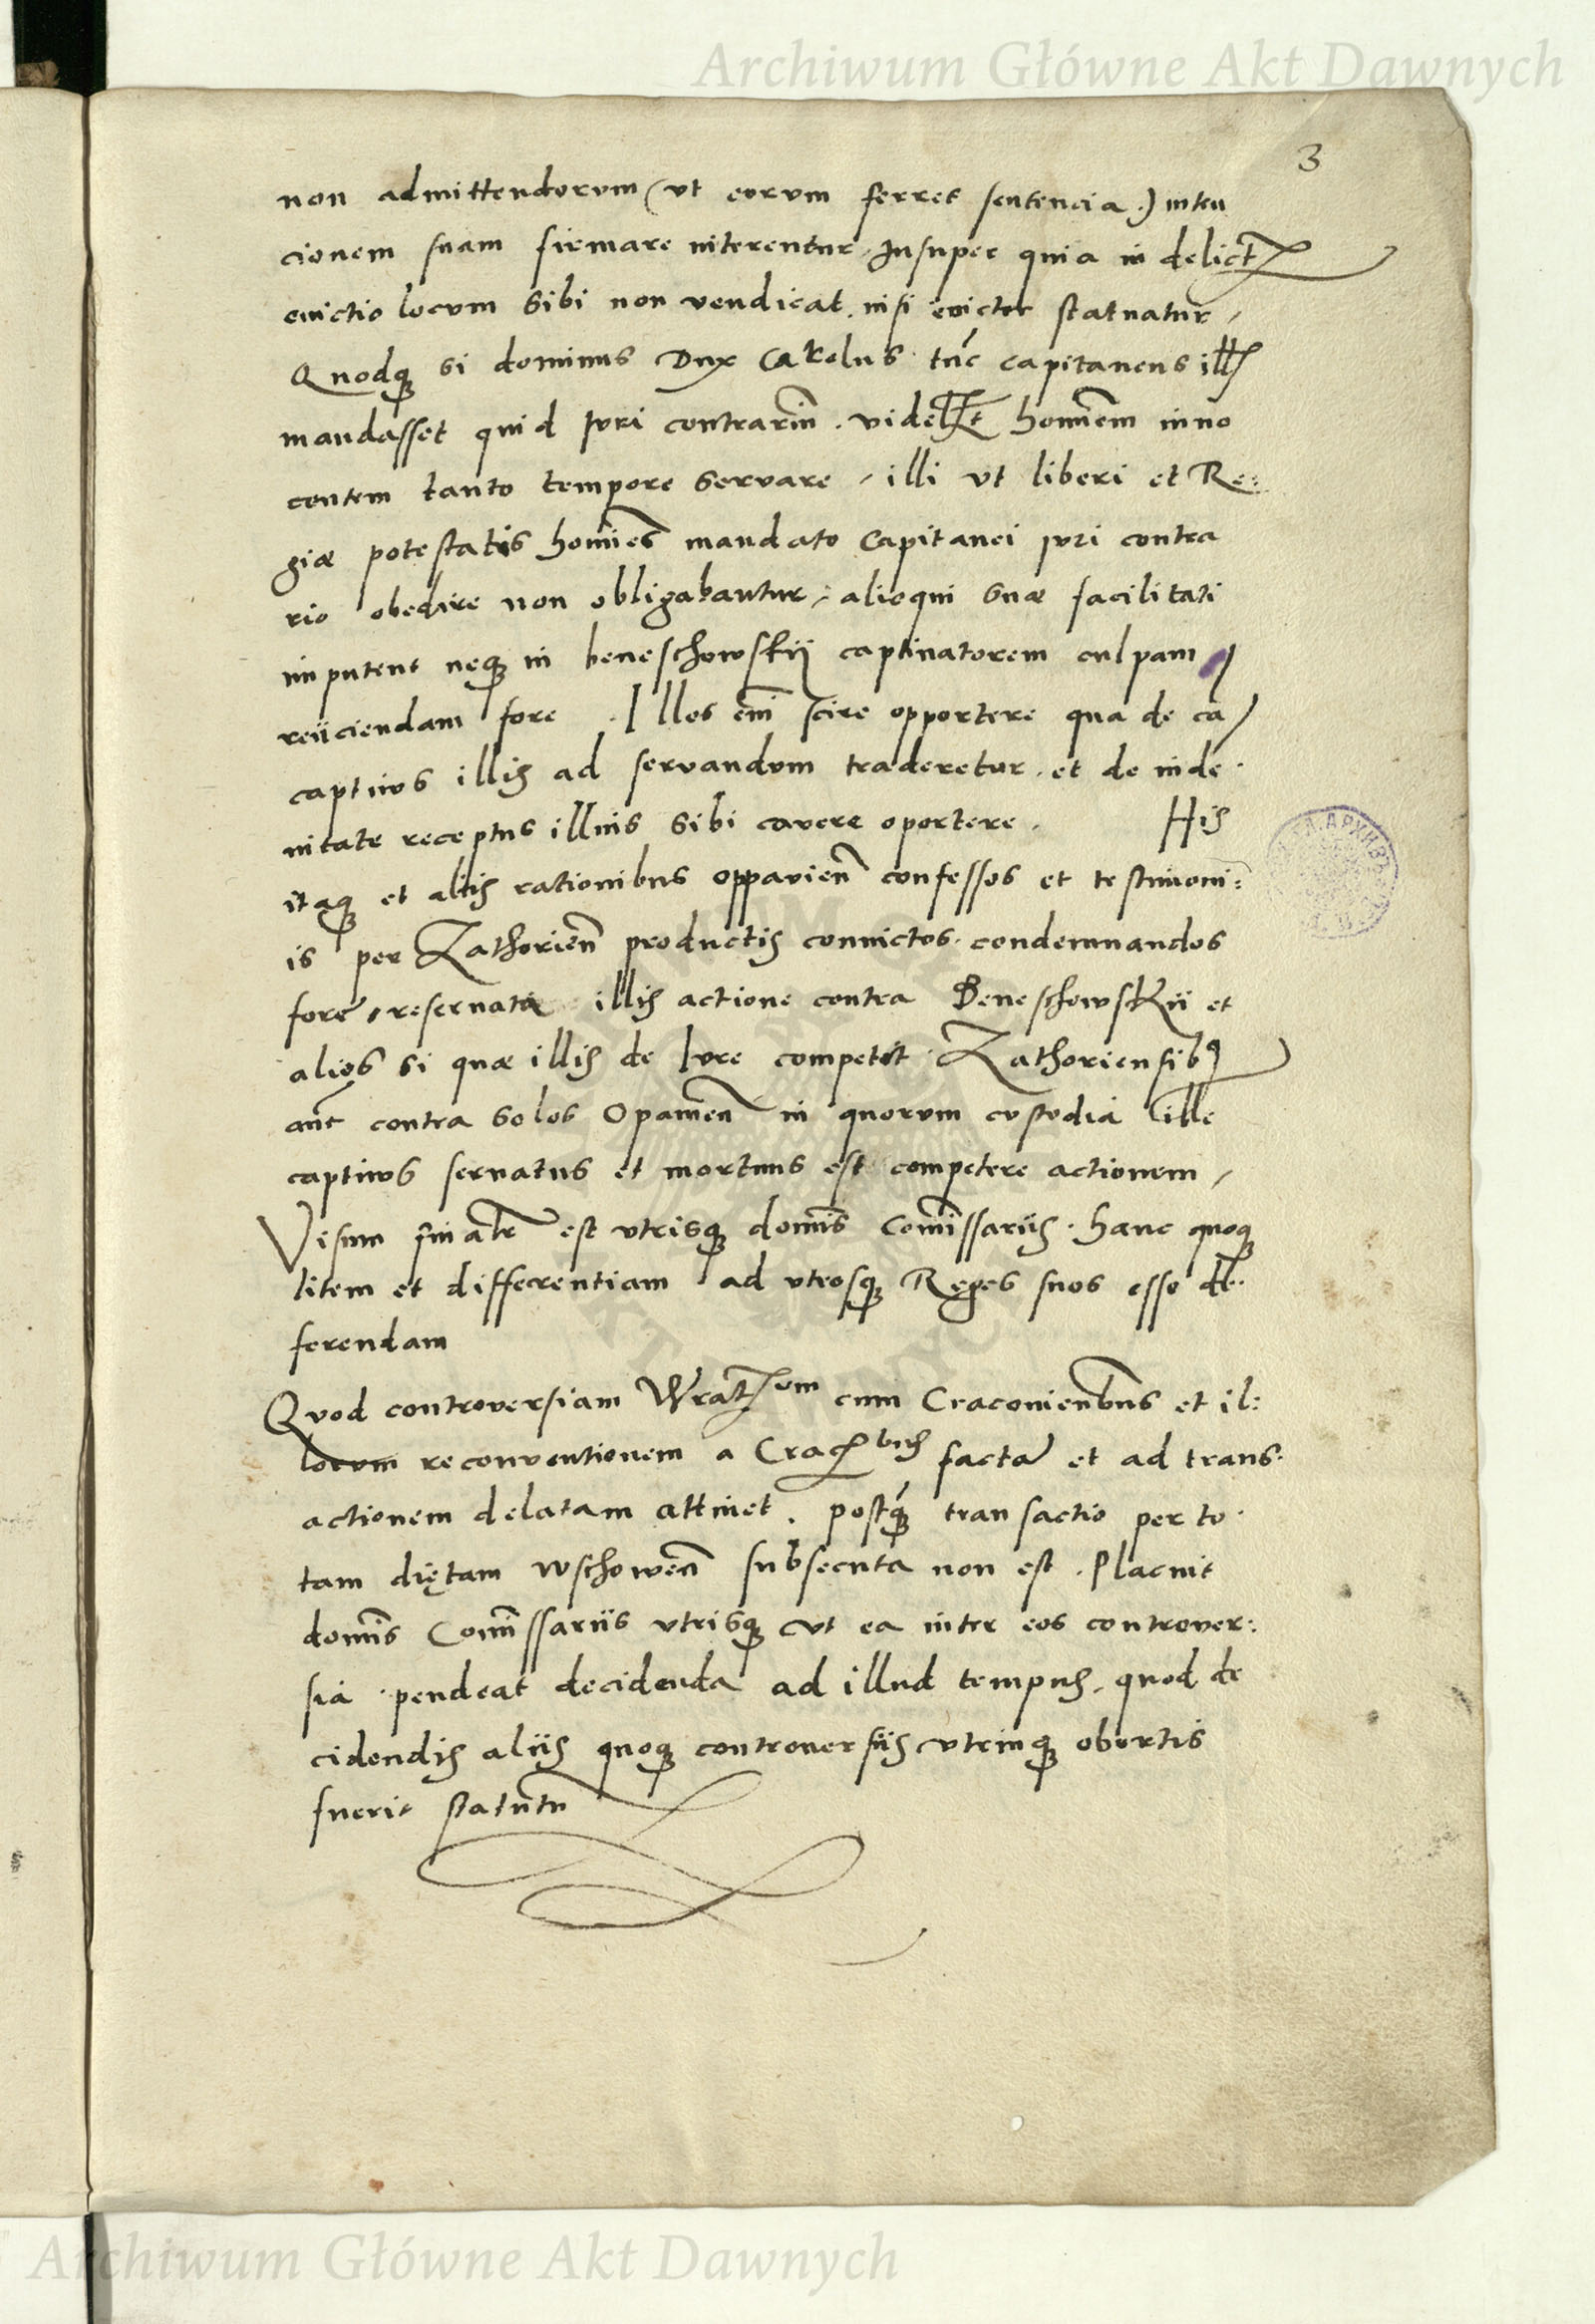 Archiwum Główne Akt Dawnych
3
non admittendorum (vt eorum ferret sentencia.) inten
cionem suam firmare niterentur. Insuper quia in delict
evictio locum sibi non vendicat. nisi evictor statuatur,
Quodq si dominus Dux Carolus tūc capitaneus ill
mandasset quid Iuri contrariū. videlt homīem inno
centem tanto tempore servare, illi vt liberi et Re:
giæ potestatis homīes mandato Capitanei iuri contra
rio obedire non obligabantur, alioqui suæ facilitati
imputent neq in beneschowskÿ captivatorem culpam
reiiciendam fore. Illos enī scire opportere qua de ca
captivus illis ad servandum traderetur. et de inde
nitate receptus illius sibi cavere oportere. His
itaq et aliis rationibus oppavien confessos et testimoni:
is per Zathorien productis convictos. condemnandos
fore, reservata illis actione contra Beneschowskii et
alios si quæ illis de Iure competit. Zathoriensib9
aut contra solos Opavien in quorum custodia ille
captivus servatus et mortuus est competere actionem,
Visum est vtrisq domīs Comīssariis. hanc quoq
litem et differentiam ad vtrosq Reges suos esse de
ferendam
Quod controversiam Wrat cum Cracovienbus et il:
lorum reconventionem a Crac bus factā et ad trans
actionem delatam attinet. postq transactio per to
tam diętam wschoweñ subsecuta non est. Placuit
domīs Comīssariis vtrisq vt ea inter eos controver:
sia pendeat decidenda ad illud tempus, quod de
cidendis aliis quoq controversiis vtrinq obortis
fuerit statutū
Archiwum Główne Akt Dawnych